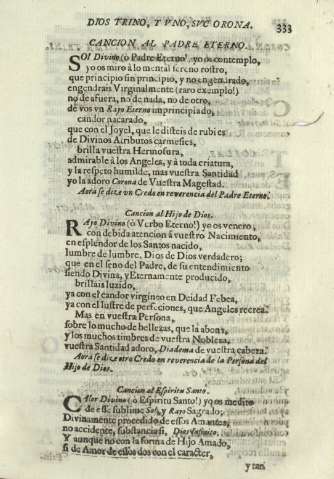 DIOS TRINO, Y UNO, SVC ORONA. 333
CANCION AL PADRE ETERNO.
SOl Divino (ò Padre Eterno! yo os contemplo,
yo os miro à lo mental sereno rostro,
que principio sin principio, y no engendrado,
engendrais Virginalmente (raro exemplo!)
no de afuera, no de nada, no de otro,
dé vos vn Rayo Eterno imprincipiado,
candor nacarado,
que con el Joyel, que le disteis de rubies
de Divinos Atributos carmesies,
brilla vuestra Hermosura,
admirable à los Angeles, y à toda criatura,
y la respeto humilde, mas vuestra Santidad
yo la adoro Corona de Vuestra Magestad.
Aora se dize vn Credo en reverencia del Padre Eterno.
Cancion al Hijo de Dios.
RAyo Divino (ò Verbo Eterno!) yo os venero,
con debida atencion à vuestro Nacimiento,
en esplendor de los Santos nacido,
lumbre de lumbre, Dios de Dios verdadero;
que en el seno del Padre, de su entendimiento
siendo Divina, y Eternamente producido,
brillais luzido,
ya con el candor virgineo en Deidad Febea,
ya con el lustre de perfecciones, que Angeles recrea.
Mas en vuestra Persona,
sobre lo mucho de bellezas, que la abona,
y los muchos timbres de vuestra Nobleza,
vuestra Santidad adoro, Diadema de vuestra cabeza.
Aora se dize otro Credo en reverencia de la Persona del
Hijo de Dios.
Cancion al Espiritu Santo.
CAlor Divino (ò Espiritu Santo!) yo os medito
de esse sublime Sol, y Rayo Sagrado;
Divinamente procedido de essos Amantes,
no accidente, substancia si, Dios infinito.
Y aunque no con la forma de Hijo Amado,
si de Amor de essos dos con el caracter,
y tan